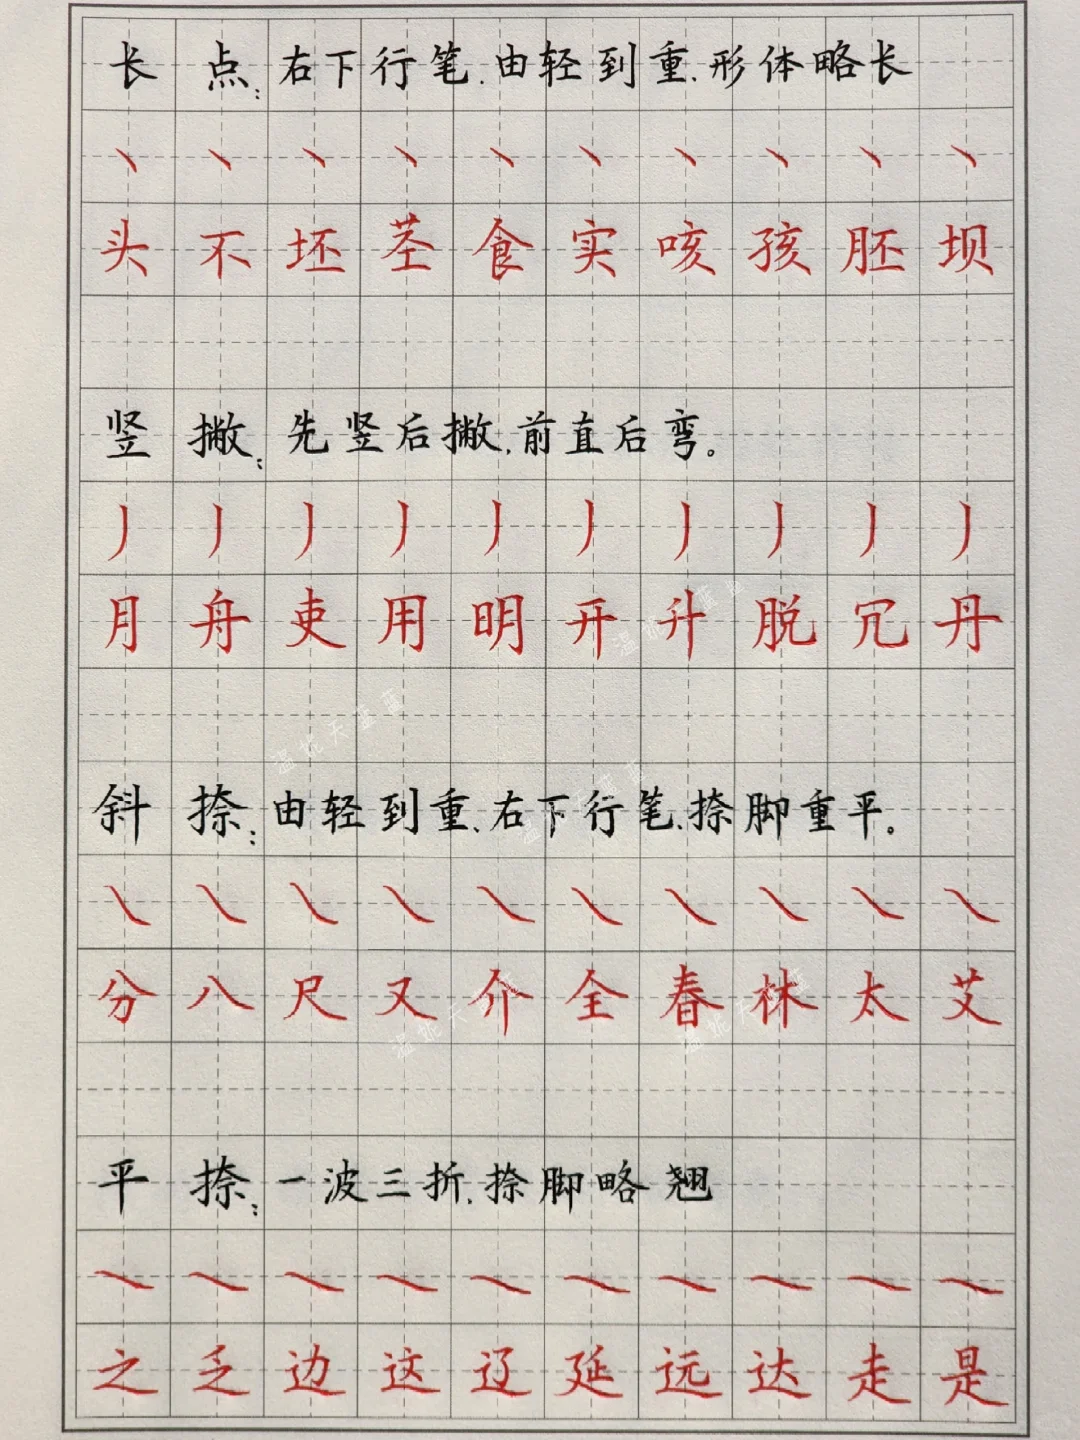 长点：右下行笔、由轻到重、形体略长
丶丶丶丶丶丶丶丶丶丶
头不坯茎食实咳孩胚坝
竖撇：先竖后撇，前直后弯。
丿丿丿丿丿丿丿丿丿丿
月舟吏用明开升脱冗丹
斜捺：由轻到重、右下行笔、捺脚重平。
㇏㇏㇏㇏㇏㇏㇏㇏㇏㇏
分八尺又介全春林太艾
平捺：一波三折，捺脚略翘
㇏㇏㇏㇏㇏㇏㇏㇏㇏㇏
之乏边这辽延远达走是